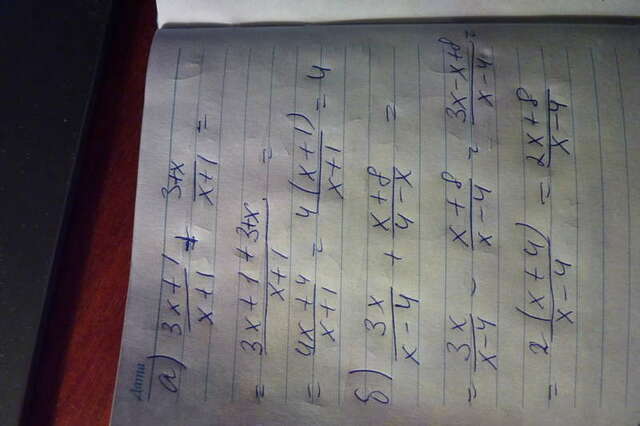 Дата
а) (3x+1)/(x+1) + (3+x)/(x+1) =
= (3x+1+3+x)/(x+1) =
= (4x+4)/(x+1) = 4(x+1)/(x+1) = 4
б) 3x/(x-4) + (x+8)/(4-x) =
= 3x/(x-4) - (x+8)/(x-4) = (3x-x+8)/(x-4) =
= 2(x+4)/(x-4) = (2x+8)/(x-4)